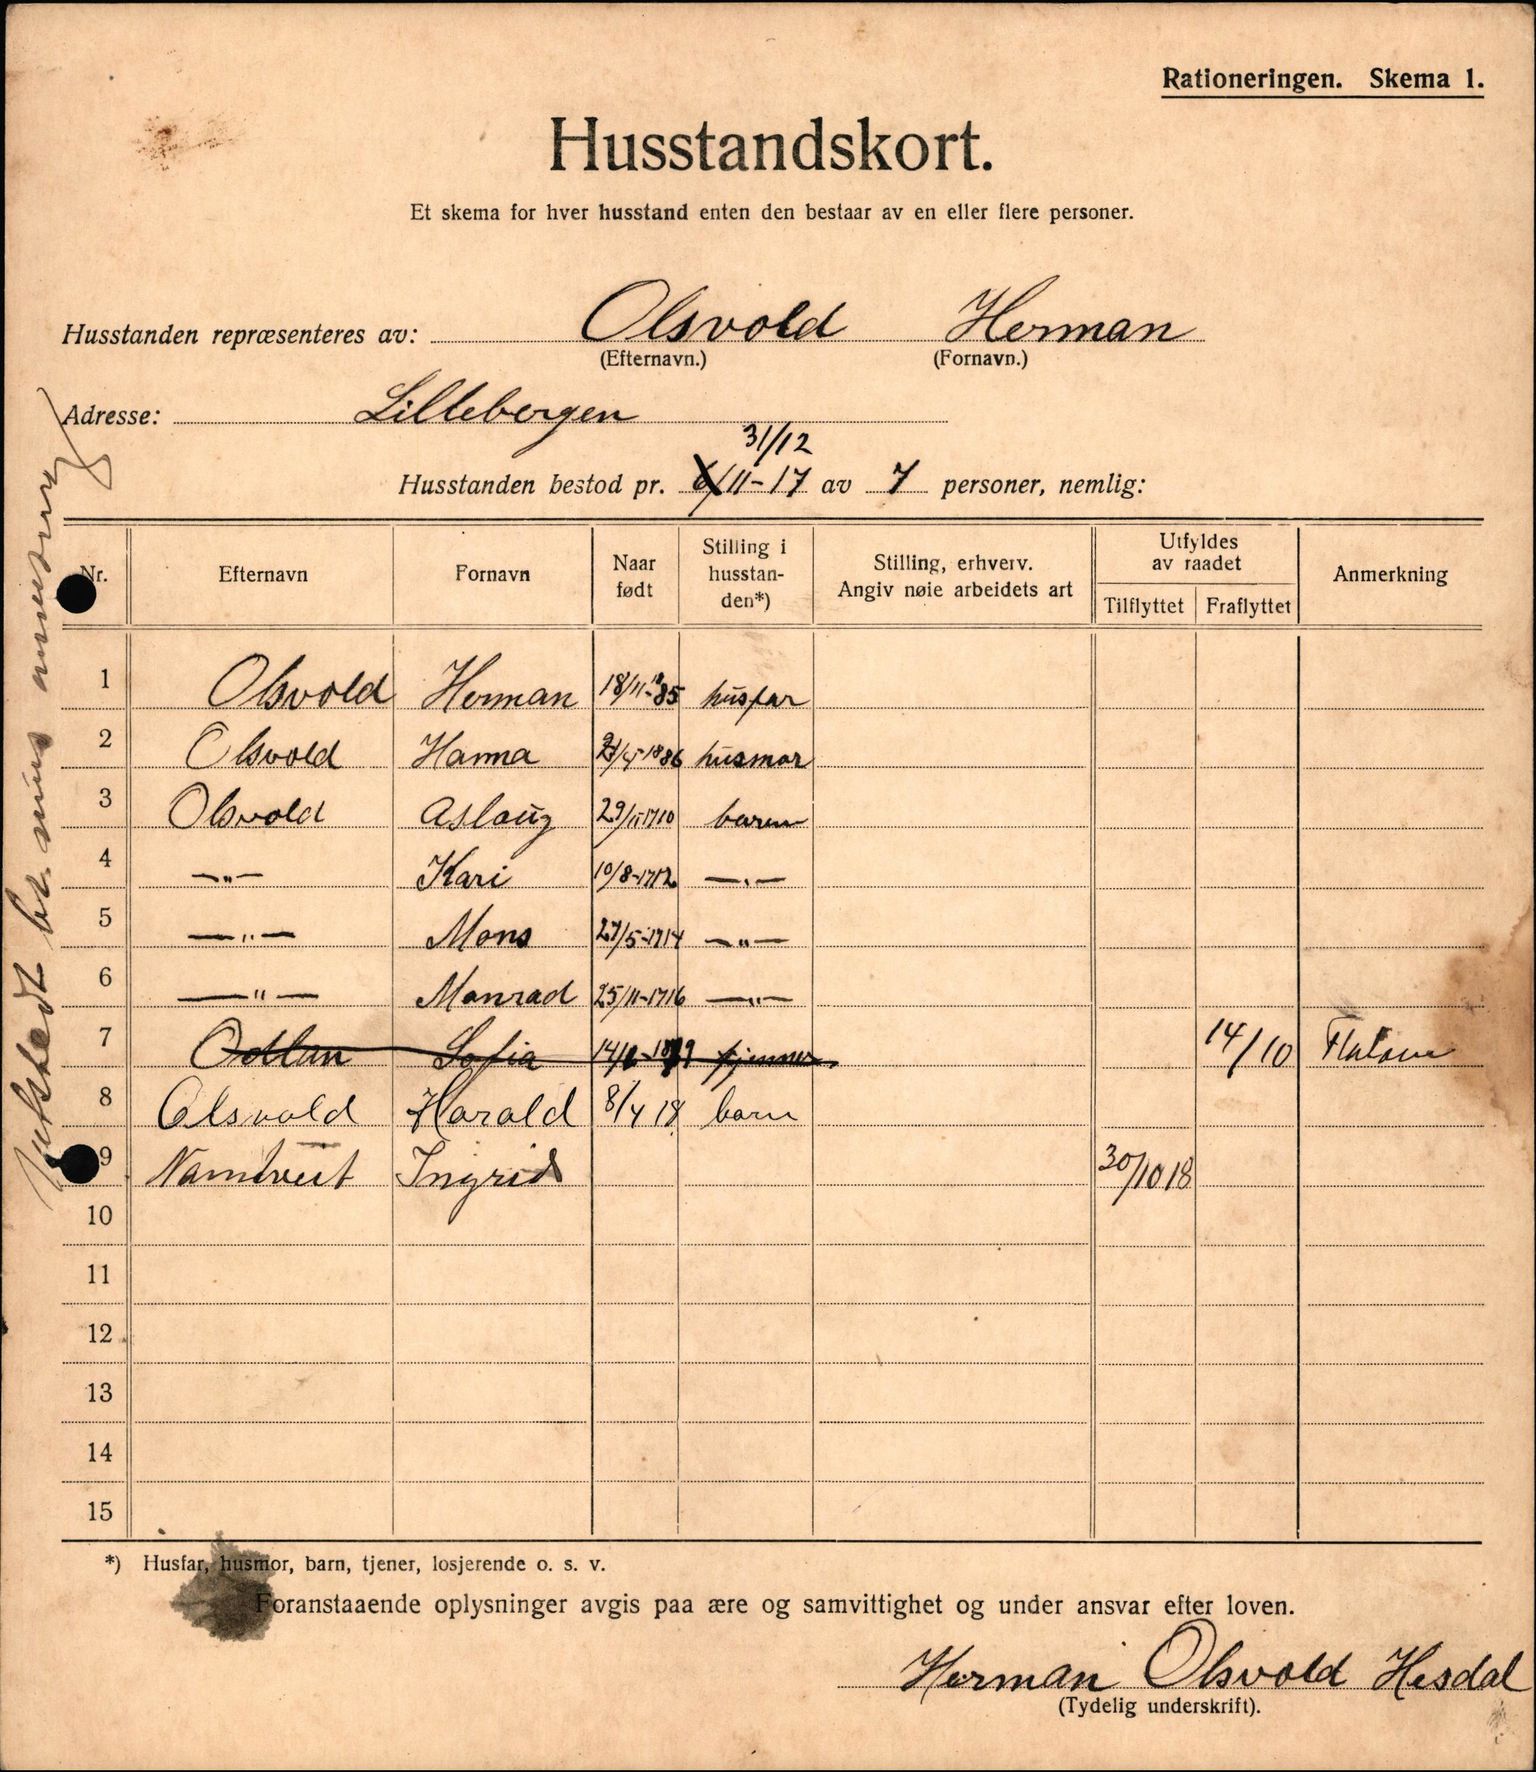 Rationeringen. Skema 1.
Husstandskort.
Et skema for hver husstand enten den bestaar av en eller flere personer.
Husstanden repræsenteres av: Olsvold Herman
(Efternavn.) (Fornavn.)
Adresse: Lillebergen
31/12
Husstanden bestod pr. 6/11-17 av 7 personer, nemlig:
Nr. Efternavn Fornavn Naar født Stilling i husstan-den*) Stilling, erhverv. Angiv nøie arbeidets art Utfyldes av raadet Tilflyttet Fraflyttet Anmerkning
1 Olsvold Herman 18/11-1885 husfar
2 Olsvold Hanna 1886 husmor
3 Olsvold Aslaug 29/11-1910 barn
4 —„— Kari 10/8-1912 —„—
5 —„— Mons 27/5-1914 —„—
6 —„— Monrad 25/11-1916 —„—
7 Odlan Sofia 14/10
8 Olsvold Harald 8/4 18 barn
9 Namtvedt Ingrid 30/10 18
10
11
12
13
14
15
*) Husfar, husmor, barn, tjener, losjerende o. s. v.
Foranstaaende oplysninger avgis paa ære og samvittighet og under ansvar efter loven.
Herman Olsvold Hesdal
(Tydelig underskrift).